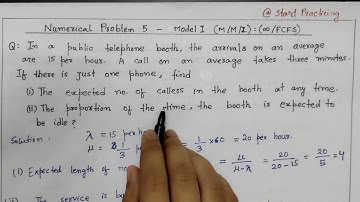 @ Start Practicing
Numerical Problem 5 - Model I (M/M/1):(∞/FCFS)
Q: In a public telephone booth, the arrivals on an average
are 15 per hour. A call on an average takes three minutes.
If there is just one phone, find
(i) The expected no. of callers in the booth at any time.
(ii) The proportion of the time, the booth is expected to
be idle?
Solution: λ = 15 per
μ = 1/3 p 1/3 × 60 = 20 per hour.
(i) Expected length of no = μ/μ-λ = 20/20-15 = 20/5 = 4
The service is bu